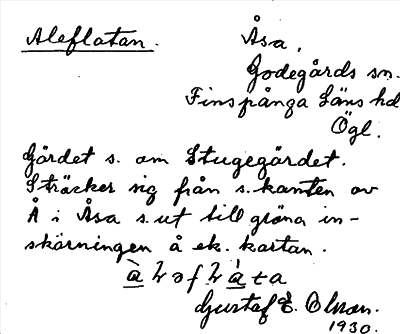 Aleflatan.
Åsa,
Godegårds sn.
Finspånga Läns hd
Ögl.
Gärdet s. om Stugegärdet.
Sträcker sig från s. kanten av
Å i Åsa s. ut till gröna in-
skärningen å ek. kartan.
Gustaf E. Olsson.
1930.